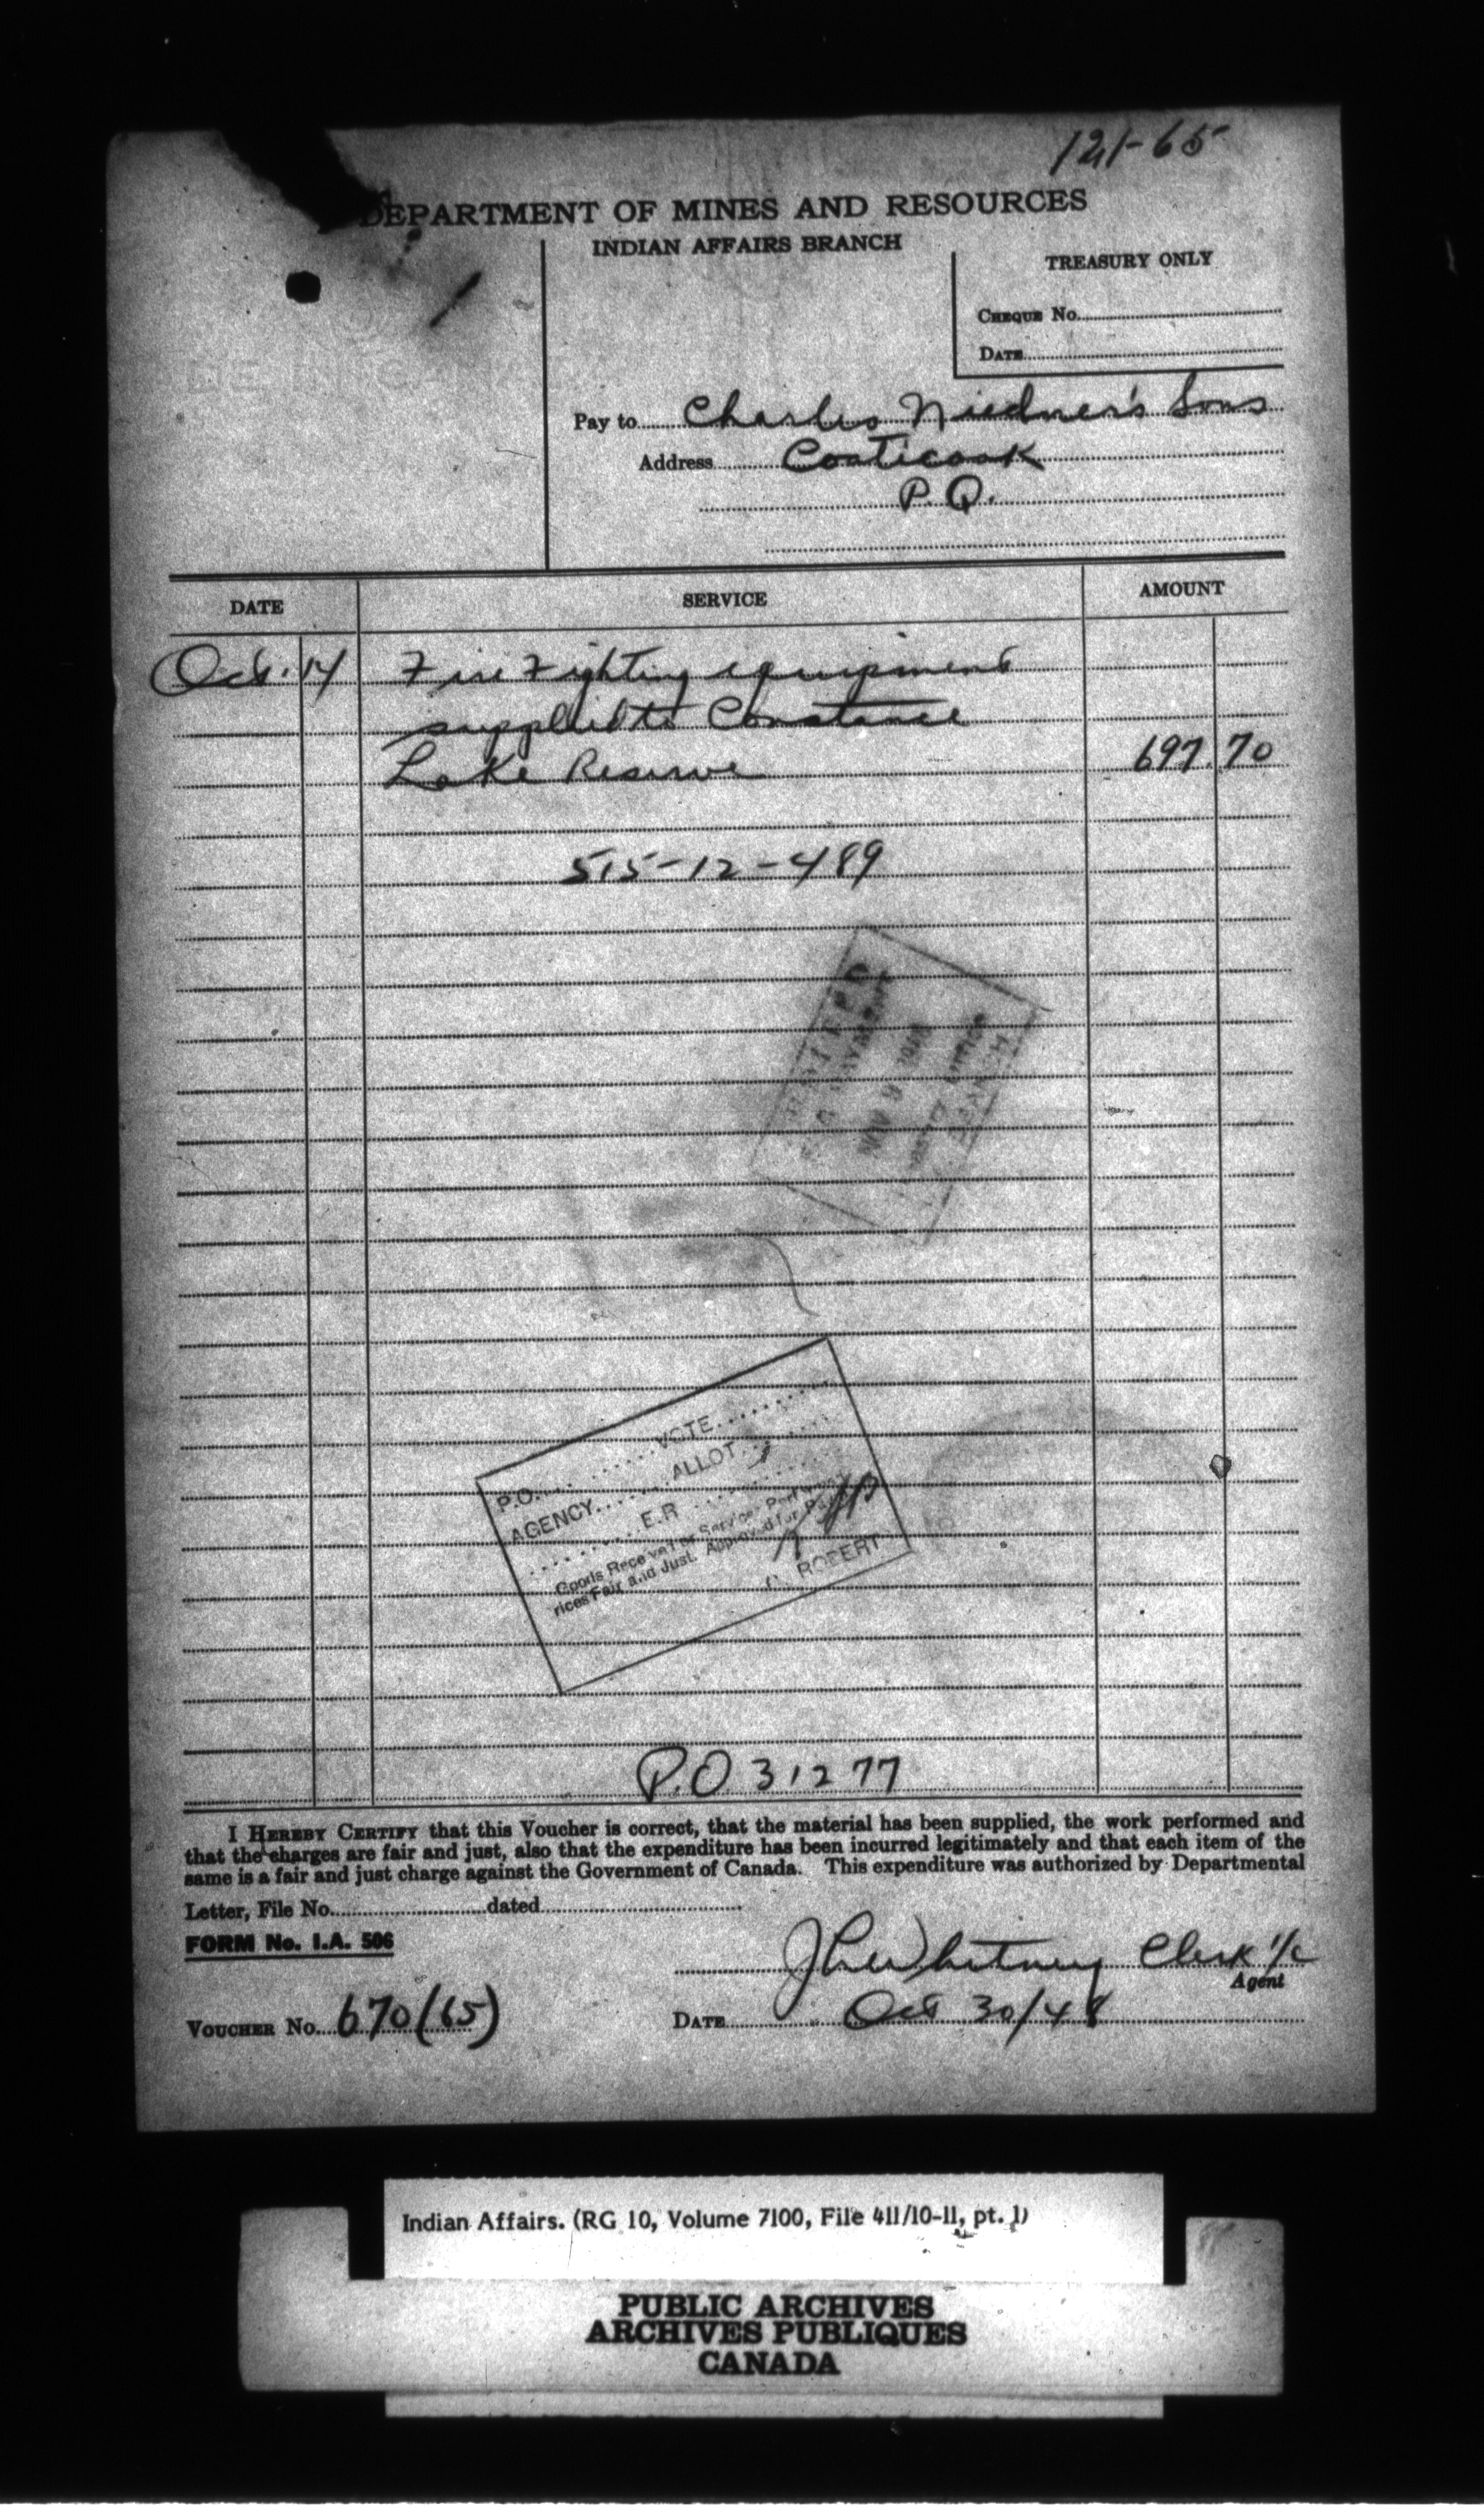 121-65
DEPARTMENT OF MINES AND RESOURCES
INDIAN AFFAIRS BRANCH
TREASURY ONLY
CHEQUE No.
DATE
Pay to Charles Niedner's Sons
Address Coaticook
P.Q.
DATE SERVICE AMOUNT
Oct. 14 Fire Fighting equipment
supplied to Constance
Lake Reserve 697.70
515-12-489
P.O. VOTE
AGENCY ALLOT
E.R
Goods Received or Services Performed
rices Fair and Just. Approved for
ROBERT
P.O. 31277
I HEREBY CERTIFY that this Voucher is correct, that the material has been supplied, the work performed and
that the charges are fair and just, also that the expenditure has been incurred legitimately and that each item of the
same is a fair and just charge against the Government of Canada. This expenditure was authorized by Departmental
Letter, File No. dated
FORM No. I.A. 506
Whitney Clerk i/c
Agent
VOUCHER No. 670(65)
DATE Oct 30/48
Indian Affairs. (RG 10, Volume 7100, File 411/10-11, pt. 1)
PUBLIC ARCHIVES
ARCHIVES PUBLIQUES
CANADA